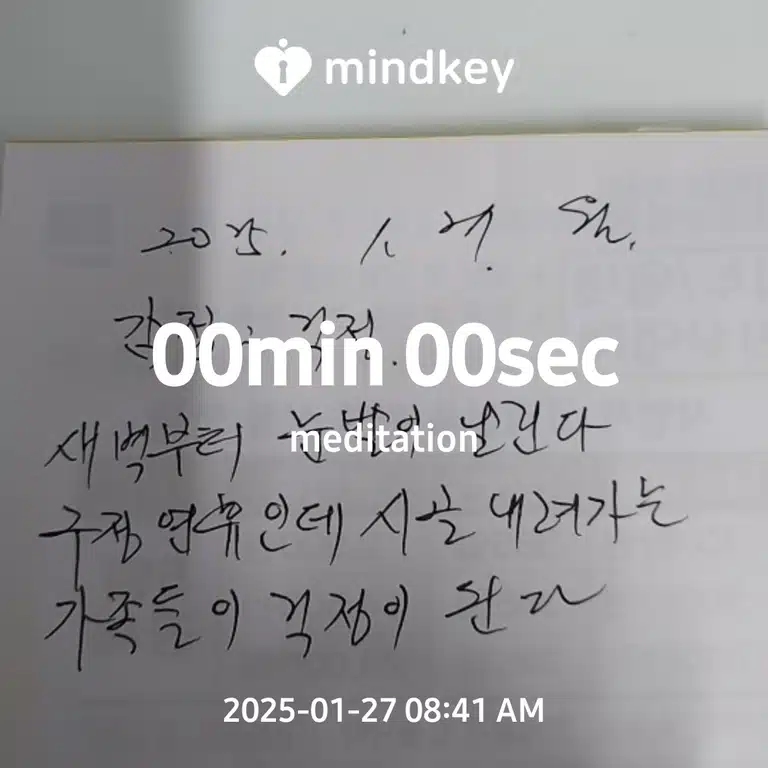 mindkey
2025. 1. 27. 월.
감정: 걱정.
00min 00sec
새벽부터 눈발이 날린다
meditation
구정 연휴인데 시골 내려가는
가족들이 걱정이 된다
2025-01-27 08:41 AM